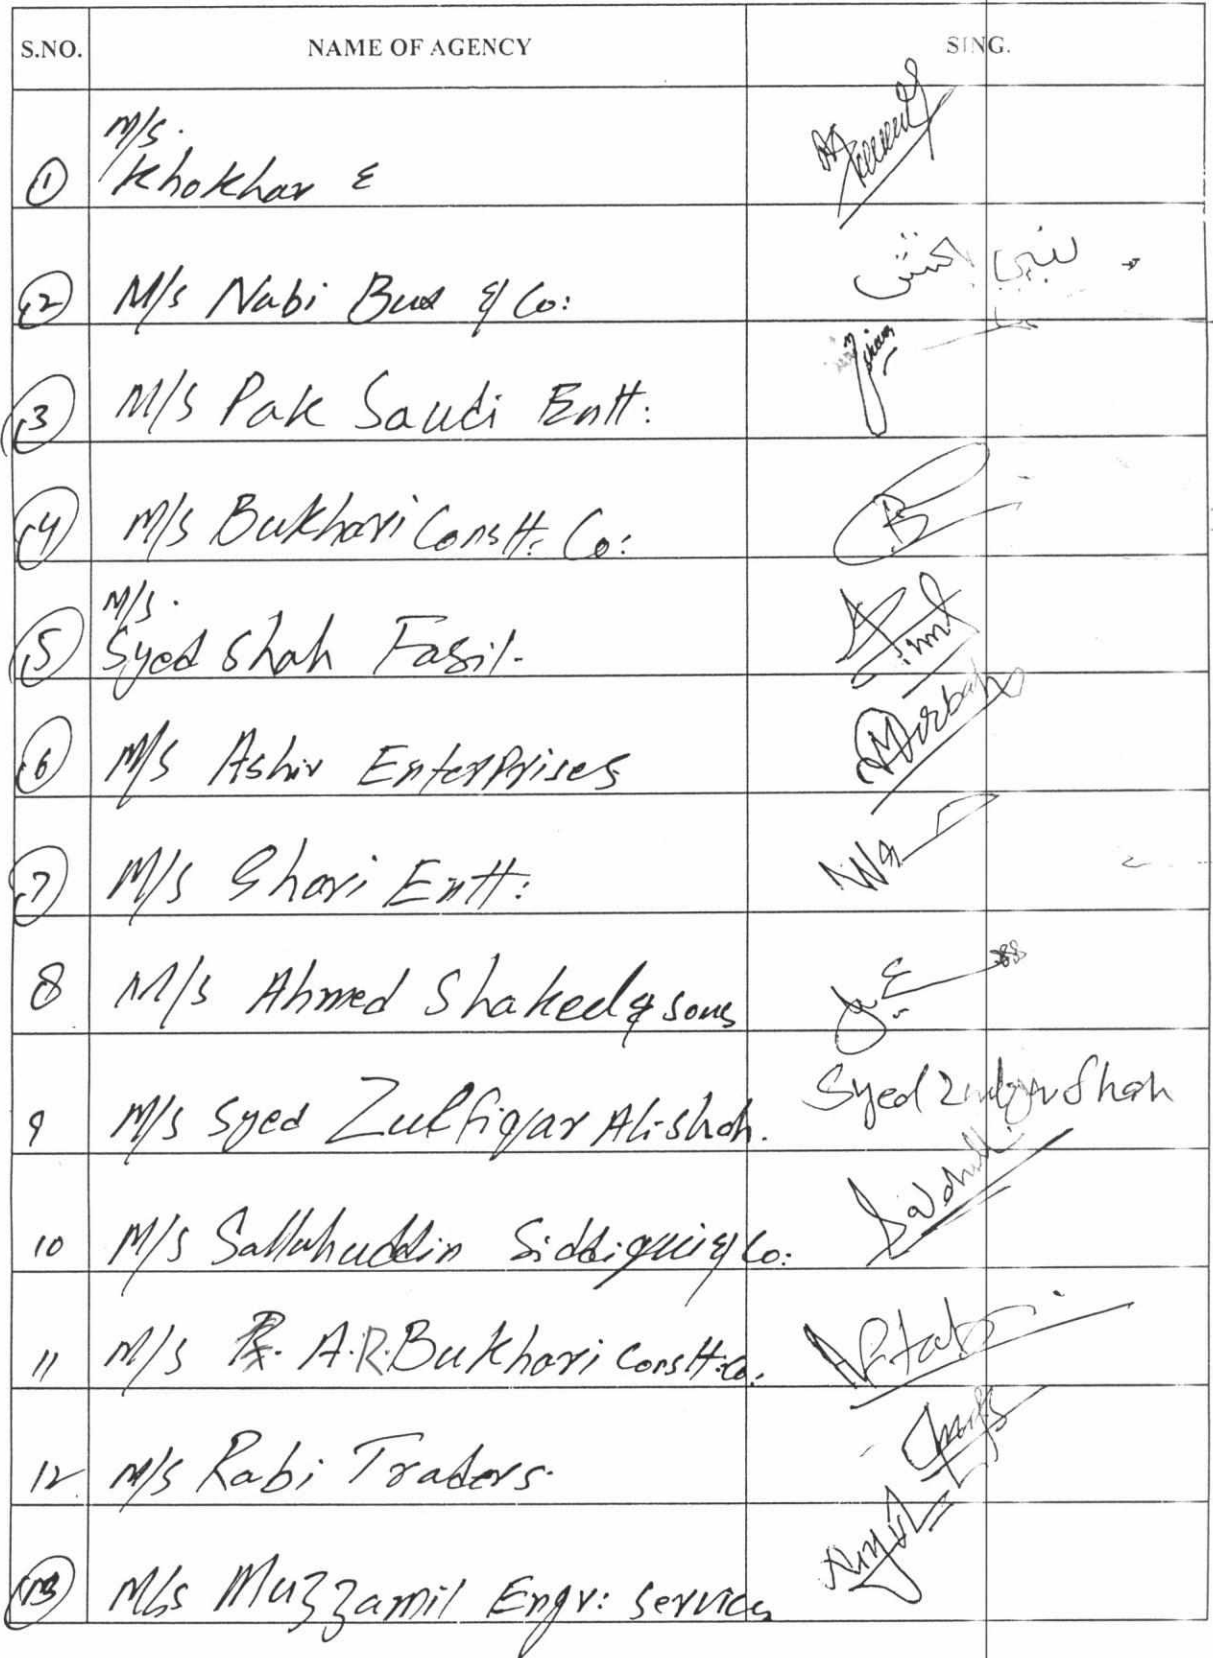 S.NO. NAME OF AGENCY SING.
M/S.
① Khokhar &
② M/S Nabi Bux & Co: نبی بخش
③ M/S Pak Saudi Entt:
④ M/S Bukhari Constt: Co:
M/S.
⑤ Syed Shah Fasil.
⑥ M/S Ashir Enterprises
⑦ M/S Ghori Entt:
8 M/S Ahmed Shakeel & Sons
9 M/S Syed Zulfiqar Ali Shah. Syed Zulfiqar Shah
10 M/S Sallahuddin Siddiqui & Co:
11 M/S A.R. Bukhari Constt: Co:
12 M/S Rabi Traders.
⑬ M/S Muzzamil Engr: Services